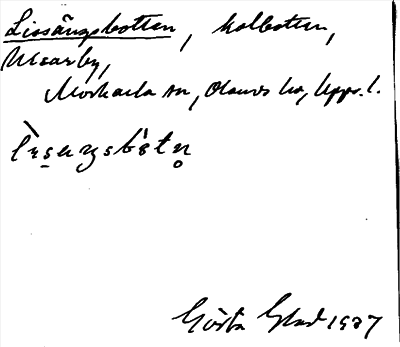 Lissängsbotten, kolbotten,
Ulvarby,
Morkarla sn, Olands hd, Upps. l.
Gösta Glad 1927